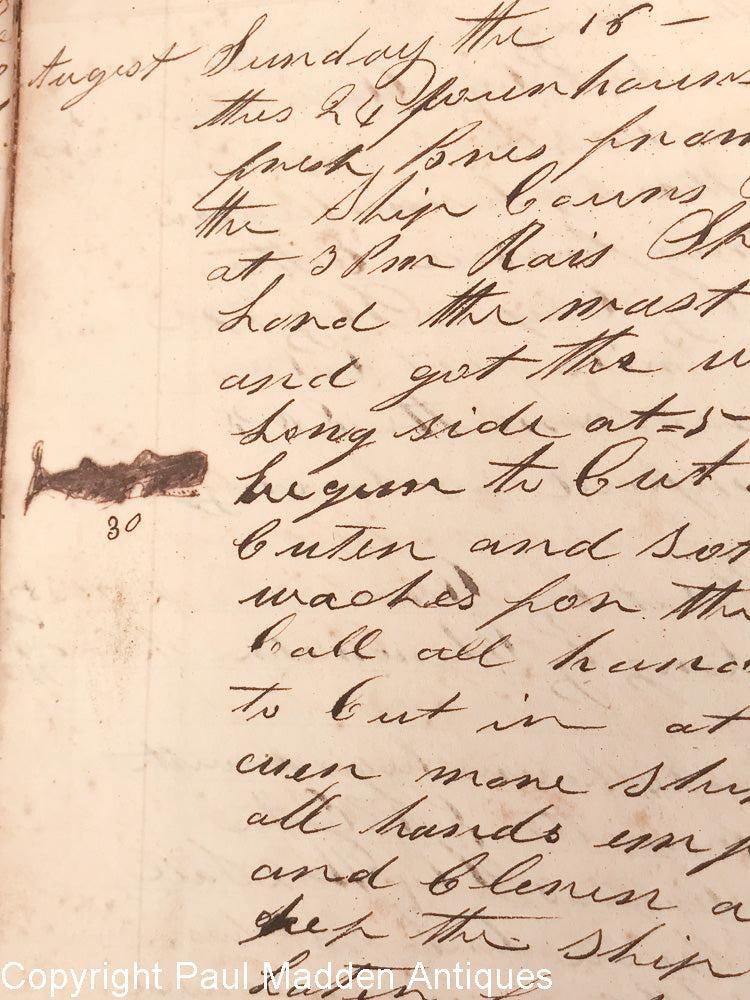 Augest Sunday the 16 -
this 24 fourhours
fresh Bres from
the ship Couns
at 3 Pm Rais Sp
Lord the mast
and got the w
Long side at = 5
begun to Cut
30
Cuten and Sot
waches for the
Call all hand
to Cut in at
all hands em
and Clenen a
the ship
Laten
Copyright Paul Madden Antiques